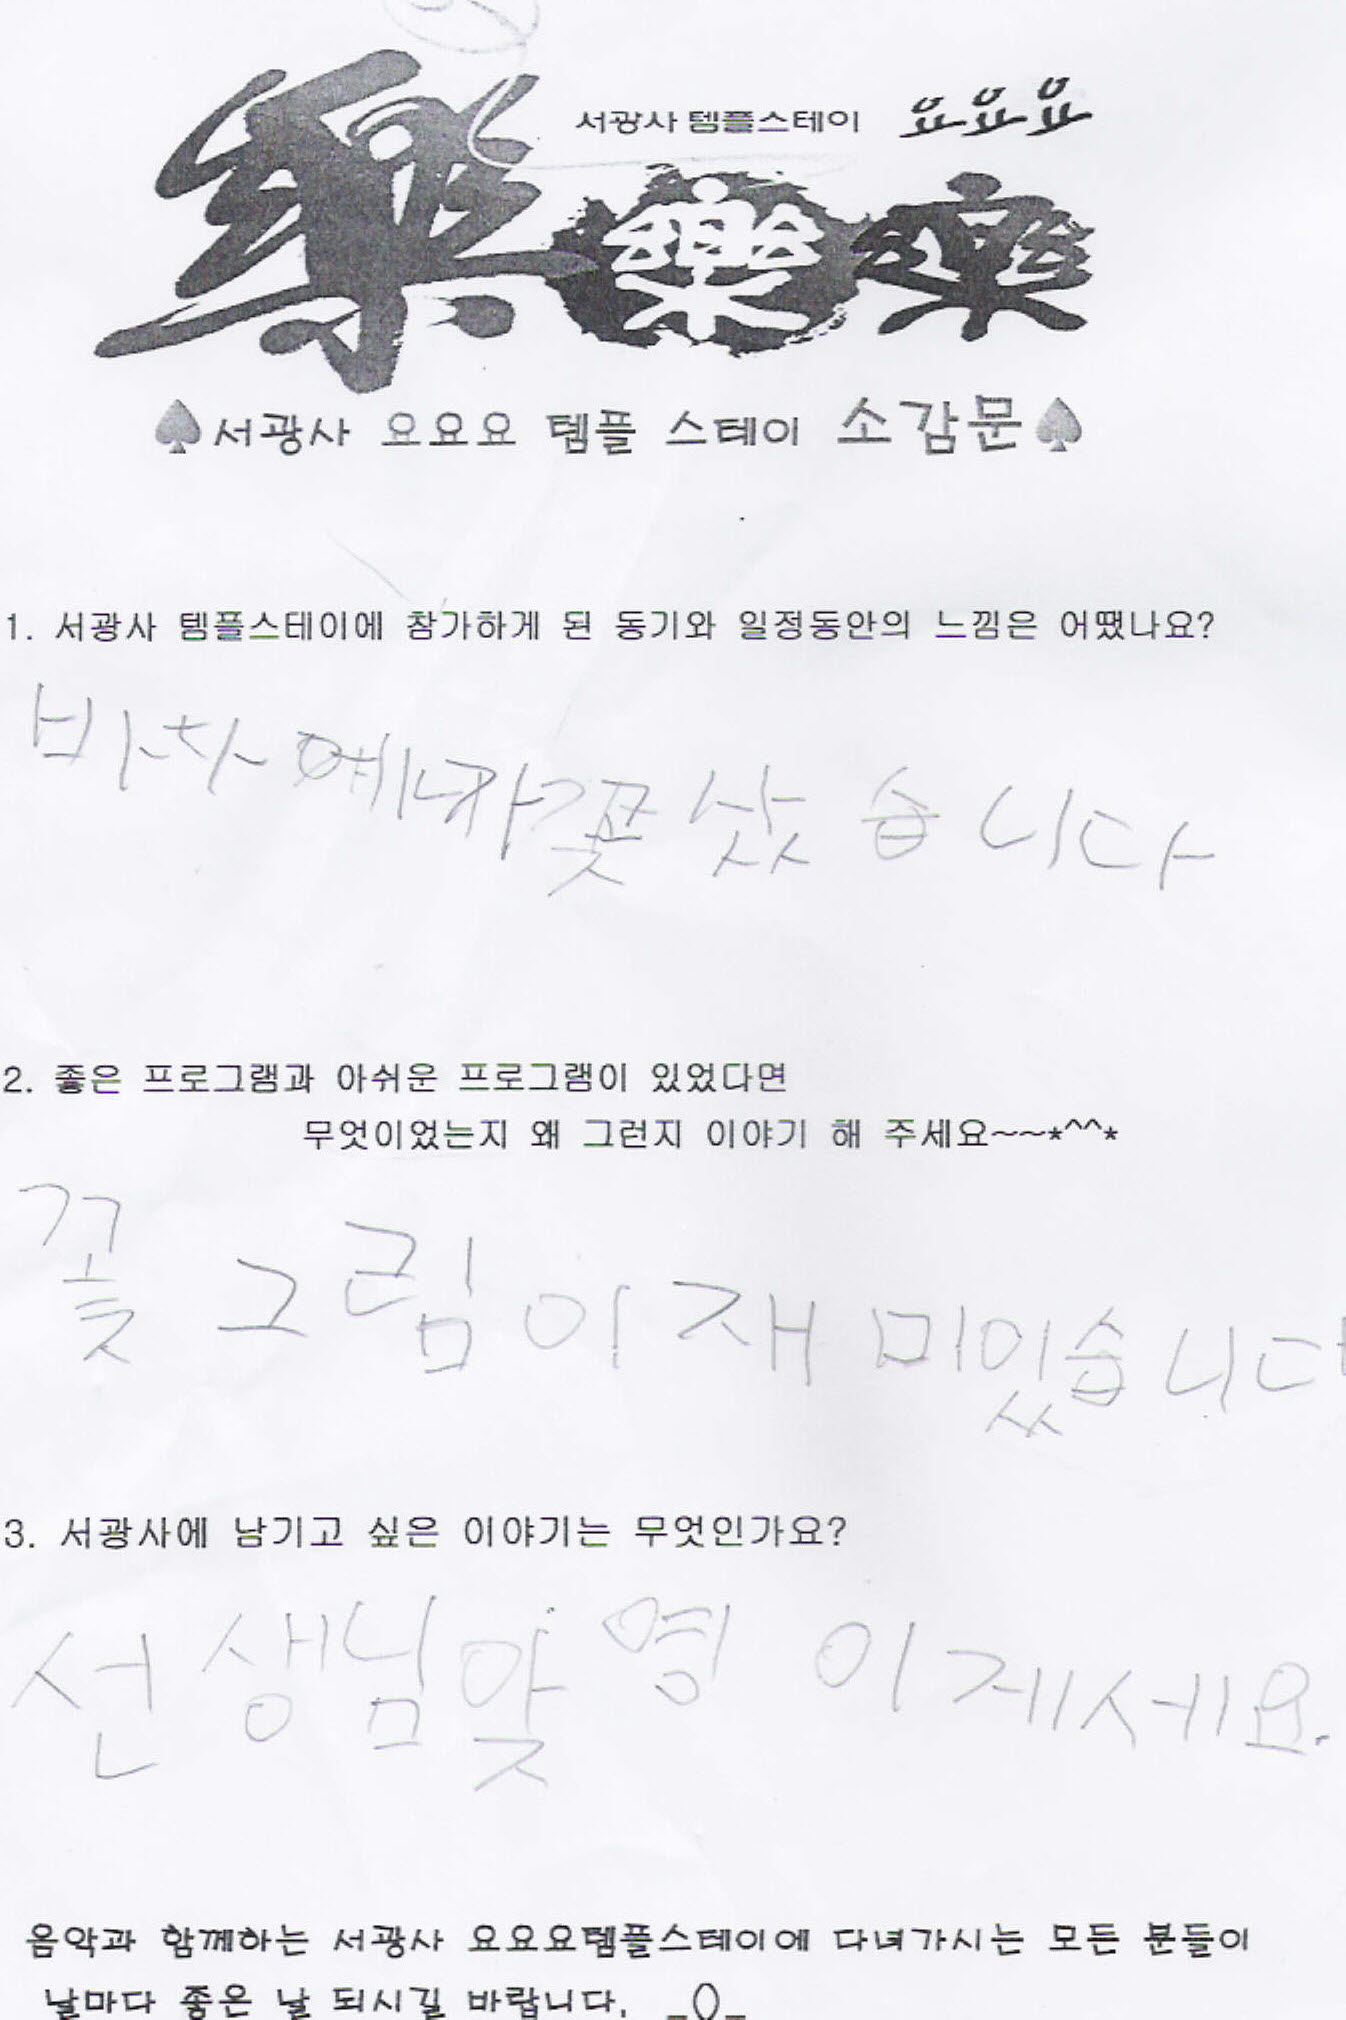 서광사 템플스테이 요요요
樂 樂 樂
♠서광사 요요요 템플 스테이 소감문♠
1. 서광사 템플스테이에 참가하게 된 동기와 일정동안의 느낌은 어땠나요?
꽃 습니다
2. 좋은 프로그램과 아쉬운 프로그램이 있었다면
무엇이었는지 왜 그런지 이야기 해 주세요~~*^^*
꽃 그림이 재미있습니다
3. 서광사에 남기고 싶은 이야기는 무엇인가요?
선생님 이제세요.
음악과 함께하는 서광사 요요요템플스테이에 다녀가시는 모든 분들이
날마다 좋은 날 되시길 바랍니다. _()_